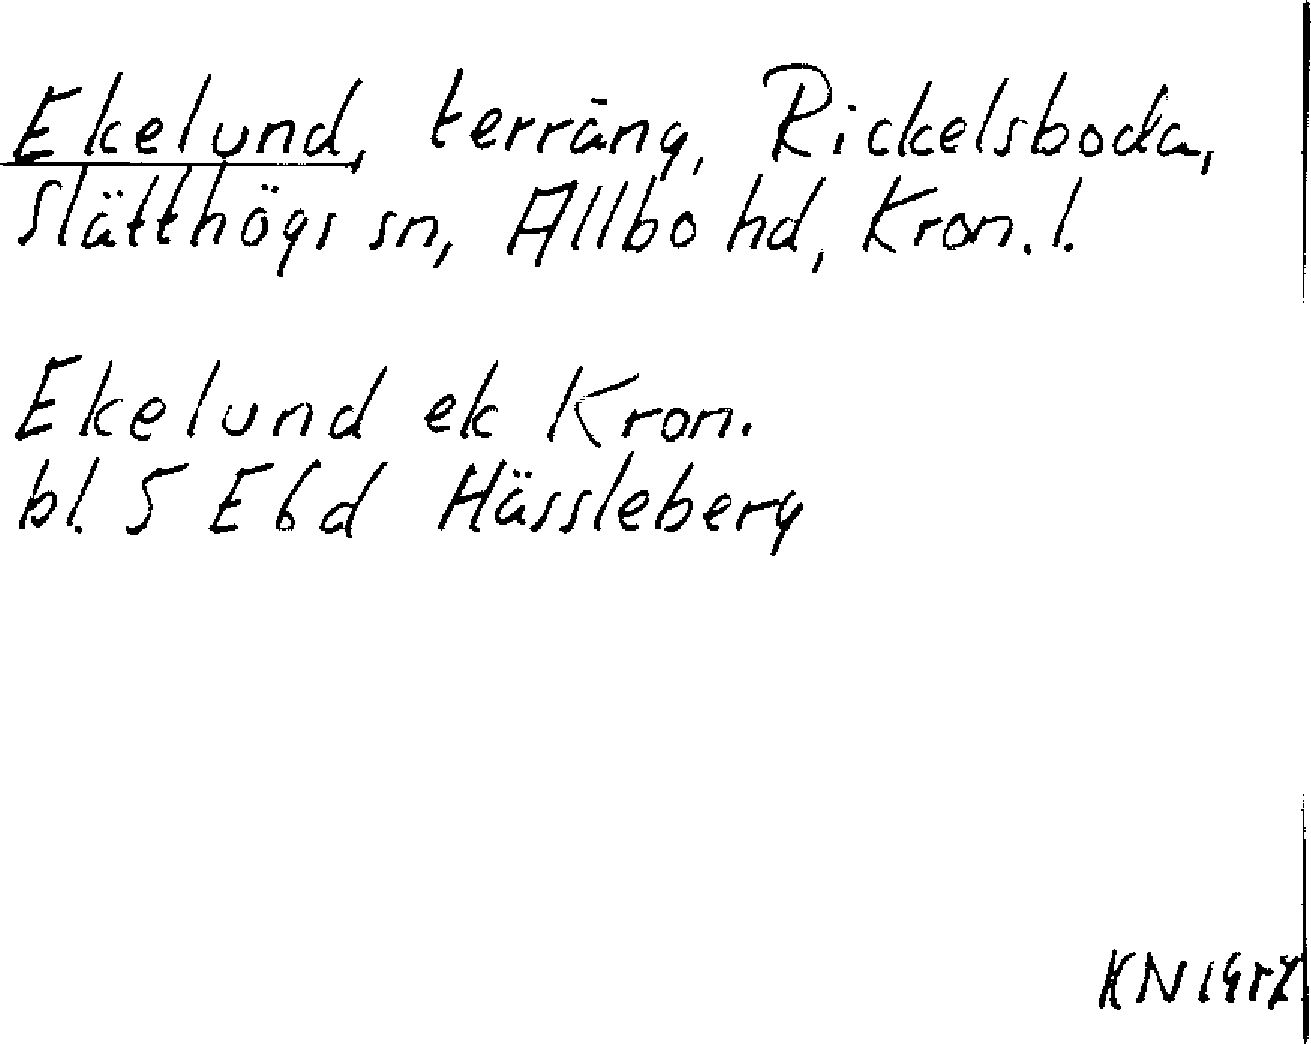 Ekelund, terräng, Rickelsboda,
Slätthögs sn, Allbo hd, Kron. l.
Ekelund ek Kron.
bl. 5 E 6 d Hässleberg
KN